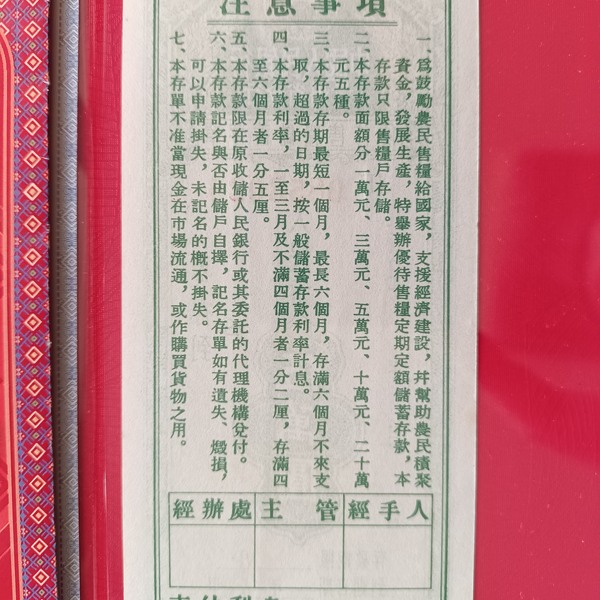 注意事項
一、爲鼓勵農民售糧給國家，支援經濟建設，幷幫助農民積聚
資金，發展生產，特舉辦優待售糧定期定額儲蓄存款，本
存款只限售糧戶存儲。
二、本存款面額分一萬元、三萬元、五萬元、十萬元、二十萬
元五種。
三、本存款存期最短一個月，最長六個月，存滿六個月不來支
取，超過的日期，按一般儲蓄存款利率計息。
四、本存款利率，一至三月及不滿四個月者一分二厘，存滿四
至六個月者一分五厘。
五、本存款限在原收儲人民銀行或其委託的代理機構兌付。
六、本存款記名與否由儲戶自擇，記名存單如有遺失、燬損，
可以申請掛失，未記名的概不掛失。
七、本存單不准當現金在市場流通，或作購買貨物之用。
經辦處 主管 經手人